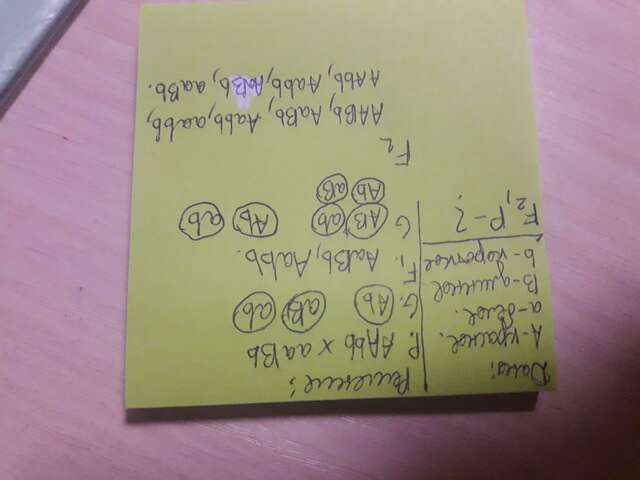 Дано:
А-красное.
а-белое.
В-длинное
b-короткое
F2, P-?
Решение:
P. AAbb x aaBb
G. Ab aB ab
F1. AaBb, Aabb.
G AB ab Ab ab
Ab aB
F2
AABb, AaBb, Aabb, aabb,
AAbb, Aabb, AaBb, aaBb.